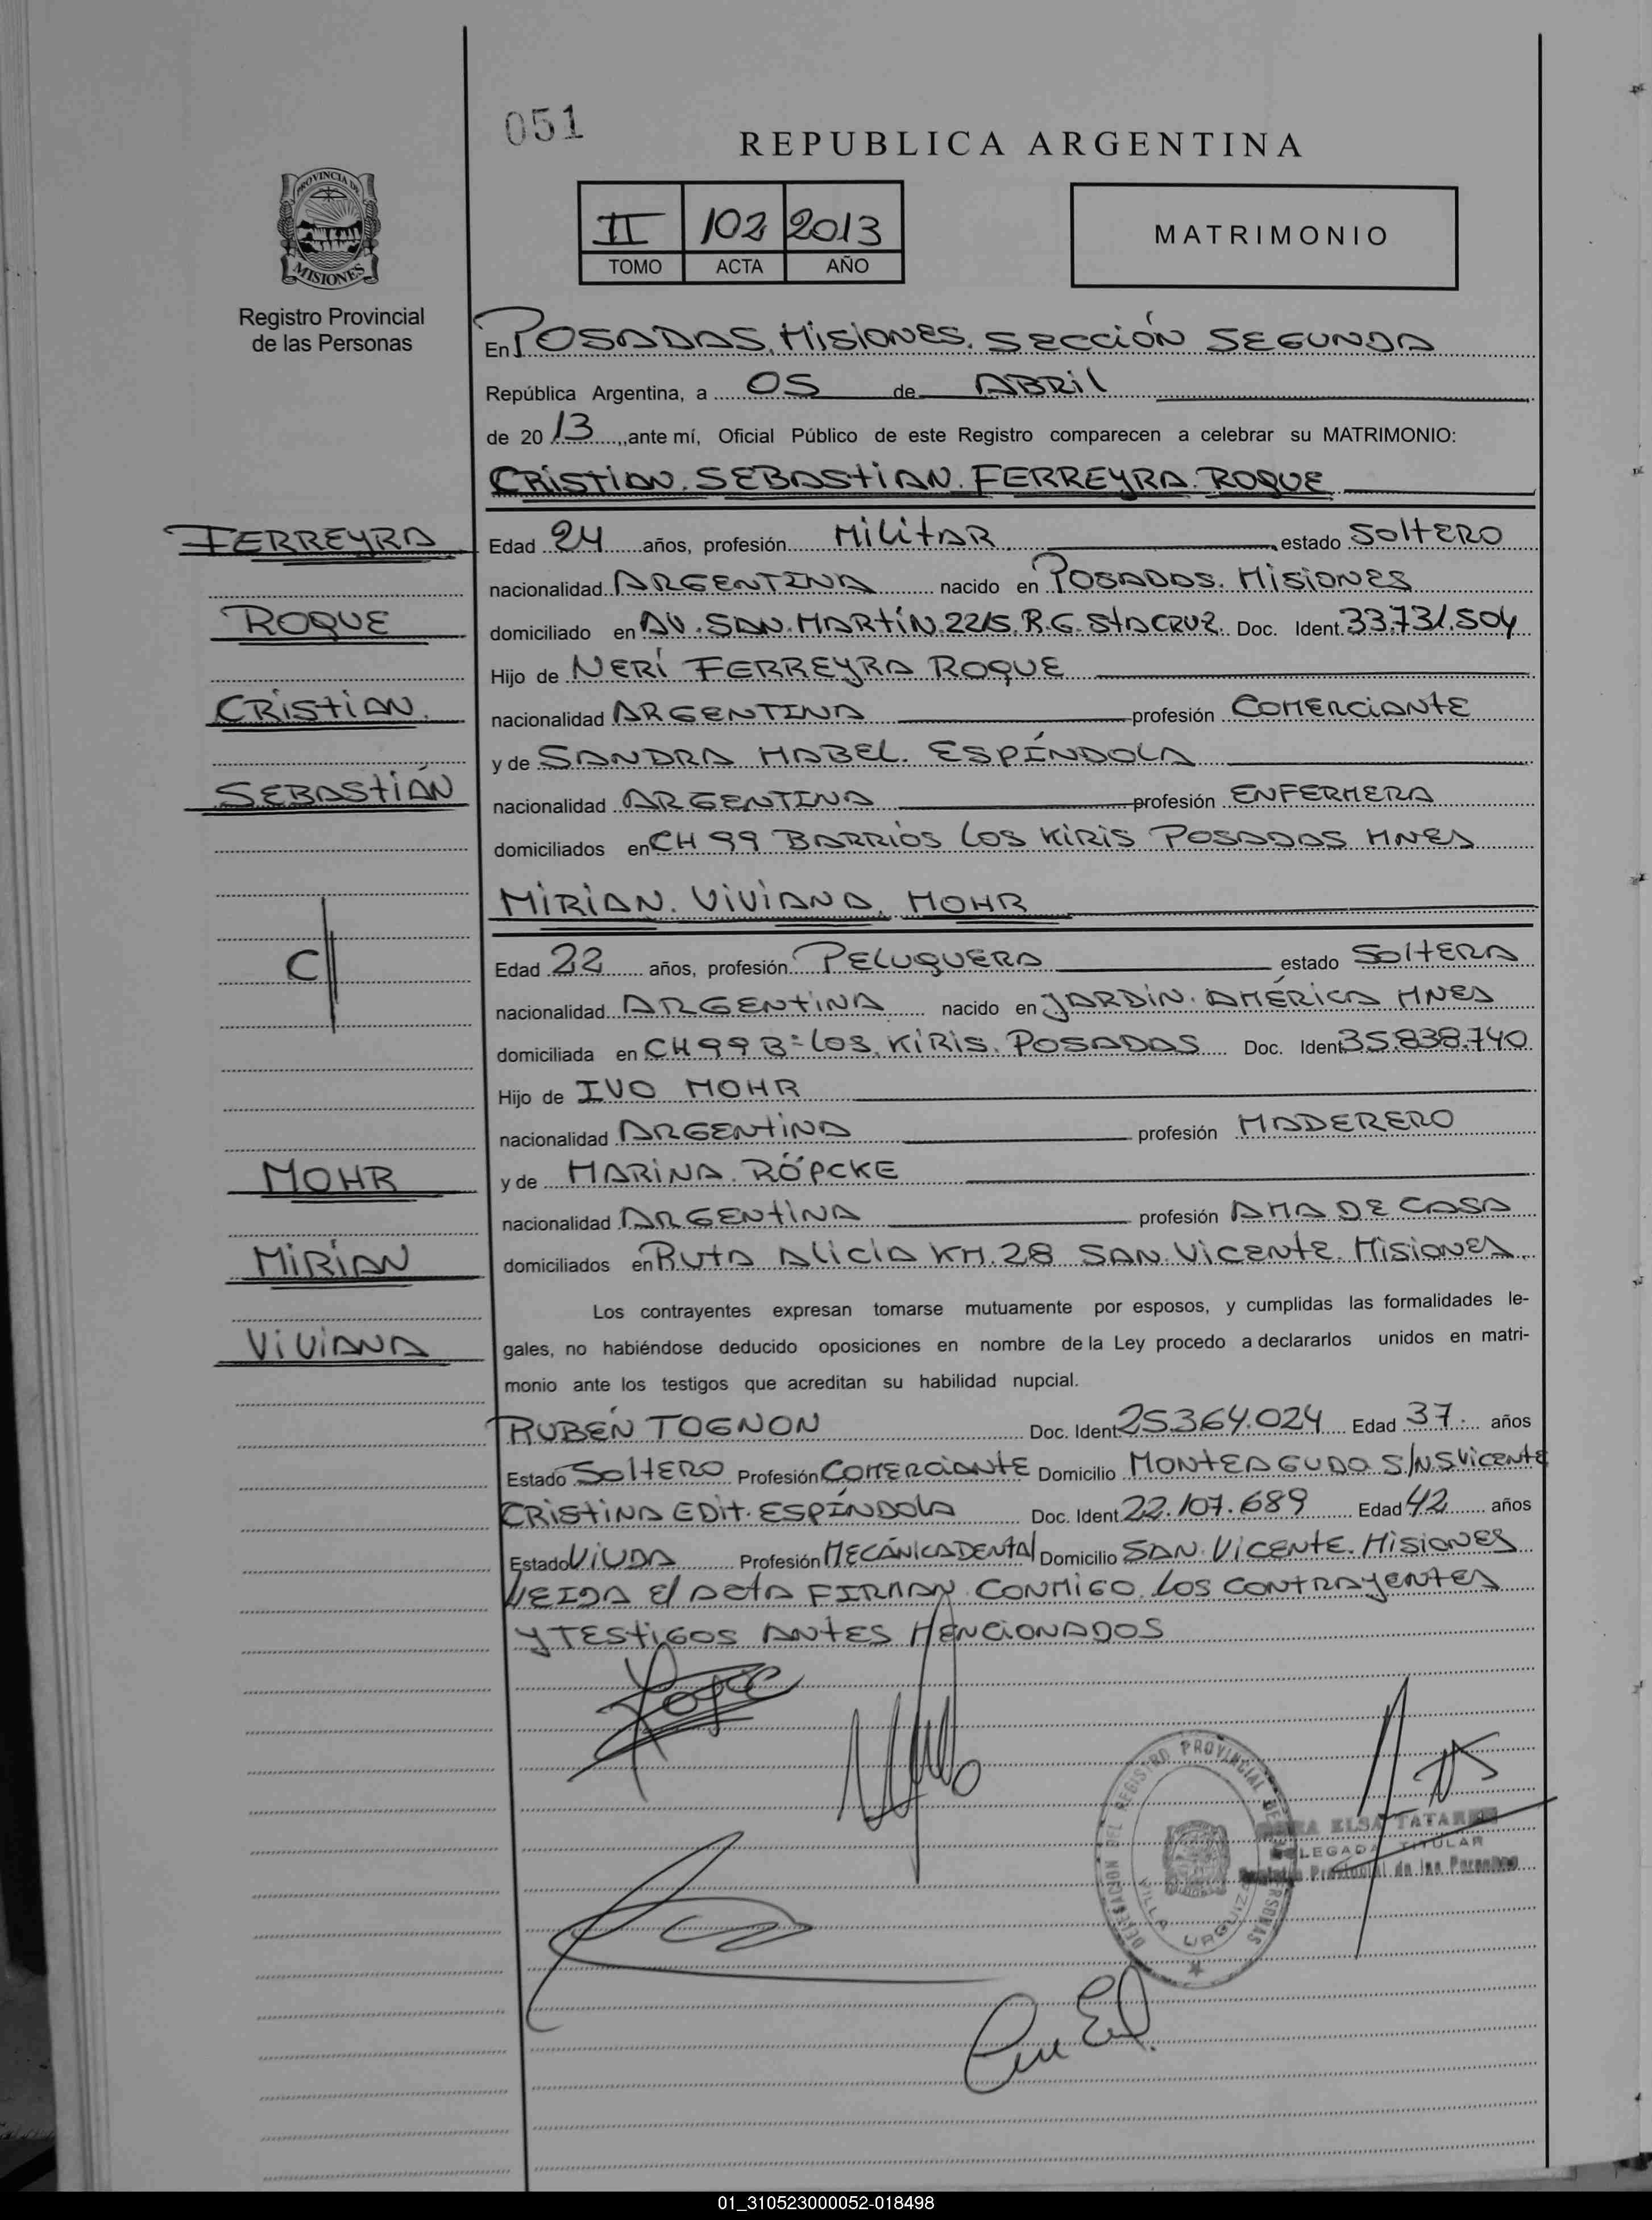 051
REPUBLICA ARGENTINA
PROVINCIA DE
MISIONES
Registro Provincial
de las Personas
II 102 2013
TOMO ACTA AÑO
MATRIMONIO
En POSADAS, MisiONES. SECCIÓN SEGUNDA
República Argentina, a 05 de ABRil
de 20 13, ante mí, Oficial Público de este Registro comparecen a celebrar su MATRIMONIO:
CRISTIAN. SEBASTIAN. FERREYRA. ROQUE
FERREYRA
Edad 24 años, profesión MILITAR estado SOLTERO
nacionalidad ARGENTINA nacido en POSADAS. MISIONES
ROQUE
domiciliado en AV. SAN. MARTÍN. 2215. R.G. StA CRUZ. Doc. Ident. 33.731.504
Hijo de NERÍ FERREYRA ROQUE
CRISTIAN.
nacionalidad ARGENTINA profesión COMERCIANTE
y de SANDRA MABEL. ESPÍNDOLA
SEBASTIÁN
nacionalidad ARGENTINA profesión ENFERMERA
domiciliados en CH 99 BARRIOS LOS KIRIS POSADAS MNES
MIRIAN. VIVIANA. MOHR
C
Edad 22 años, profesión PELUQUERA estado SOLTERA
nacionalidad ARGENTINA nacido en JARDÍN. AMÉRICA MNES
domiciliada en CH 99 Bº LOS. KIRIS. POSADAS Doc. Ident 35.838.740
Hijo de IVO MOHR
nacionalidad ARGENTINA profesión MADERERO
MOHR
y de MARINA. RÖPCKE
nacionalidad ARGENTINA profesión AMA DE CASA
MIRIAN
domiciliados en RUTA ALICIA KM. 28 SAN. VICENTE. MISIONES
Los contrayentes expresan tomarse mutuamente por esposos, y cumplidas las formalidades le-
VIVIANA
gales, no habiéndose deducido oposiciones en nombre de la Ley procedo a declararlos unidos en matri-
monio ante los testigos que acreditan su habilidad nupcial.
RUBÉN TOGNON Doc. Ident 25.364.024 Edad 37 años
Estado SOLTERO Profesión COMERCIANTE Domicilio MONTEAGUDO S/N S VICENTE
CRISTINA EDIT. ESPÍNDOLA Doc. Ident 22.107.689 Edad 42 años
Estado VIUDA Profesión MECÁNICA DENTAL Domicilio SAN. VICENTE. MISIONES
LEIDA El ACTA FIRMAN CONMIGO. LOS CONTRAYENTES
Y TESTIGOS ANTES MENCIONADOS
DELEGACION DEL REGISTRO PROVINCIAL DE PERSONAS
VILLA URQUIZA
ELSA TATAREN
DELEGADA TITULAR
Registro Provincial de las Personas
01_310523000052-018498